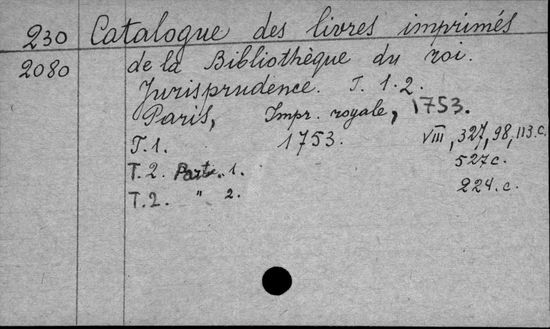 230 Catalogue des livres imprimés
2080 de la Bibliothèque du roi.
Jurisprudence. T. 1.2.
Paris, Impr. royale, 1753.
T.1. 1753. VIII, 327, 98, 113.c.
T.2. Part. 1. 527c.
T.2. " 2. 224.c.